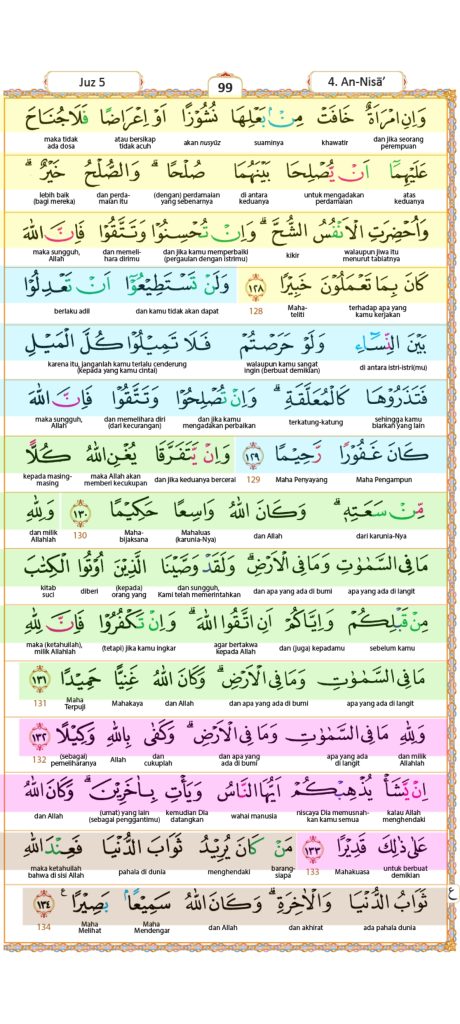 Juz 5
99
4. An-Nisā’
وَاِنِ امْرَاَةٌ خَافَتْ مِنْۢ بَعْلِهَا نُشُوْزًا اَوْ اِعْرَاضًا فَلَا جُنَاحَ
dan jika seorang perempuan khawatir suaminya akan nusyūz atau bersikap tidak acuh maka tidak ada dosa
عَلَيْهِمَآ اَنْ يُّصْلِحَا بَيْنَهُمَا صُلْحًا ۗ وَالصُّلْحُ خَيْرٌ ۗ
atas keduanya untuk mengadakan perdamaian di antara keduanya (dengan) perdamaian yang sebenarnya dan perda- maian itu lebih baik (bagi mereka)
وَاُحْضِرَتِ الْاَنْفُسُ الشُّحَّ ۗ وَاِنْ تُحْسِنُوْا وَتَتَّقُوْا فَاِنَّ اللّٰهَ
walaupun jiwa itu menurut tabiatnya kikir dan jika kamu memperbaiki (pergaulan dengan istrimu) dan memeli- hara dirimu maka sungguh, Allah
كَانَ بِمَا تَعْمَلُوْنَ خَبِيْرًا ١٢٨ وَلَنْ تَسْتَطِيْعُوْٓا اَنْ تَعْدِلُوْا
terhadap apa yang kamu kerjakan Maha- teliti 128 dan kamu tidak akan dapat berlaku adil
بَيْنَ النِّسَاۤءِ وَلَوْ حَرَصْتُمْ فَلَا تَمِيْلُوْا كُلَّ الْمَيْلِ
di antara istri-istri(mu) walaupun kamu sangat ingin (berbuat demikian) karena itu, janganlah kamu terlalu cenderung (kepada yang kamu cintai)
فَتَذَرُوْهَا كَالْمُعَلَّقَةِ ۗ وَاِنْ تُصْلِحُوْا وَتَتَّقُوْا فَاِنَّ اللّٰهَ
sehingga kamu biarkan yang lain terkatung-katung dan jika kamu mengadakan perbaikan dan memelihara diri (dari kecurangan) maka sungguh, Allah
كَانَ غَفُوْرًا رَّحِيْمًا ١٢٩ وَاِنْ يَّتَفَرَّقَا يُغْنِ اللّٰهُ كُلًّا
Maha Pengampun Maha Penyayang 129 dan jika keduanya bercerai maka Allah akan memberi kecukupan kepada masing- masing
مِّنْ سَعَتِهٖۗ وَكَانَ اللّٰهُ وَاسِعًا حَكِيْمًا ١٣٠ وَلِلّٰهِ
dari karunia-Nya dan Allah Mahaluas (karunia-Nya) Maha- bijaksana 130 dan milik Allahlah
مَا فِى السَّمٰوٰتِ وَمَا فِى الْاَرْضِۗ وَلَقَدْ وَصَّيْنَا الَّذِيْنَ اُوْتُوا الْكِتٰبَ
apa yang ada di langit dan apa yang ada di bumi dan sungguh, Kami telah memerintahkan (kepada) orang yang diberi kitab suci
مِنْ قَبْلِكُمْ وَاِيَّاكُمْ اَنِ اتَّقُوا اللّٰهَ ۗ وَاِنْ تَكْفُرُوْا فَاِنَّ لِلّٰهِ
sebelum kamu dan (juga) kepadamu agar bertakwa kepada Allah (tetapi) jika kamu ingkar maka (ketahuilah), milik Allahlah
مَا فِى السَّمٰوٰتِ وَمَا فِى الْاَرْضِۗ وَكَانَ اللّٰهُ غَنِيًّا حَمِيْدًا ١٣١
apa yang ada di langit dan apa yang ada di bumi dan Allah Mahakaya Maha Terpuji 131
وَلِلّٰهِ مَا فِى السَّمٰوٰتِ وَمَا فِى الْاَرْضِۗ وَكَفٰى بِاللّٰهِ وَكِيْلًا ١٣٢
dan milik Allahlah apa yang ada di langit dan apa yang ada di bumi dan cukuplah Allah (sebagai) pemeliharanya 132
اِنْ يَّشَأْ يُذْهِبْكُمْ اَيُّهَا النَّاسُ وَيَأْتِ بِاٰخَرِيْنَۗ وَكَانَ اللّٰهُ
kalau Allah menghendaki niscaya Dia memusnah- kan kamu semua wahai manusia kemudian Dia datangkan (umat) yang lain (sebagai penggantimu) dan Allah
عَلٰى ذٰلِكَ قَدِيْرًا ١٣٣ مَنْ كَانَ يُرِيْدُ ثَوَابَ الدُّنْيَا فَعِنْدَ اللّٰهِ
untuk berbuat demikian Mahakuasa 133 barang- siapa menghendaki pahala di dunia maka ketahuilah bahwa di sisi Allah
ثَوَابُ الدُّنْيَا وَالْاٰخِرَةِ ۗ وَكَانَ اللّٰهُ سَمِيْعًاۢ بَصِيْرًا ࣖ ١٣٤
ada pahala dunia dan akhirat dan Allah Maha Mendengar Maha Melihat 134
ع